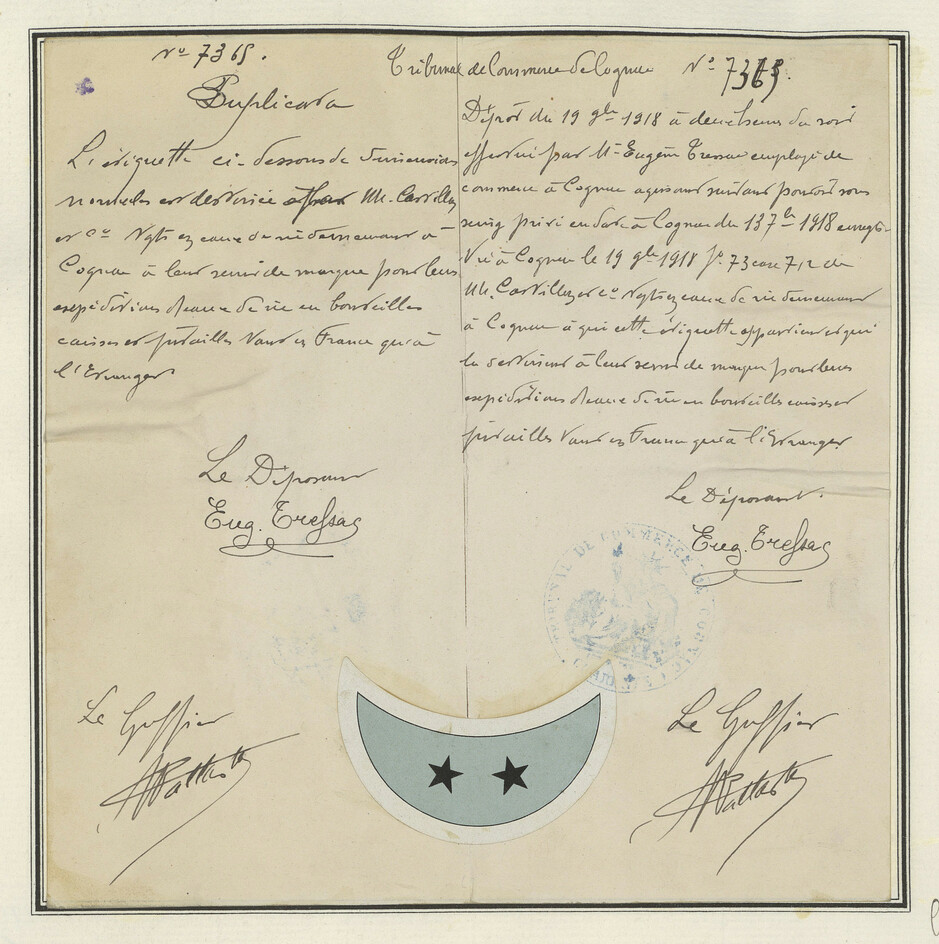 No 7365.
Duplicata
L'étiquette ci-dessous de dimensions
normales est destinée par MM. Castillon
et Co Négts en eaux de vie demeurant à
Cognac à leur servir de marque pour leurs
expéditions d'eaux de vie en bouteilles
caisses et futailles tant en France qu'à
l'Etranger
Le Déposant
Eug. Tressac
Le Greffier
Tribunal de Commerce de Cognac No 7365.
Dépôt du 19 9bre 1918 à deux heures du soir
effectué par Mr Eugène Tressac employé de
commerce à Cognac agissant suivant pouvoir sous
seing privé en date à Cognac du 13 7bre 1918 enregis-
tré à Cognac le 19 9bre 1918 fo 73 case 712 de
MM. Castillon et Co Négts en eaux de vie demeurant
à Cognac à qui cette étiquette appartient et qui
la destinent à leur servir de marque pour leurs
expéditions d'eaux de vie en bouteilles caisses et
futailles tant en France qu'à l'Etranger
Le Déposant.
Eug. Tressac
TRIBUNAL DE COMMERCE DE COGNAC
Le Greffier